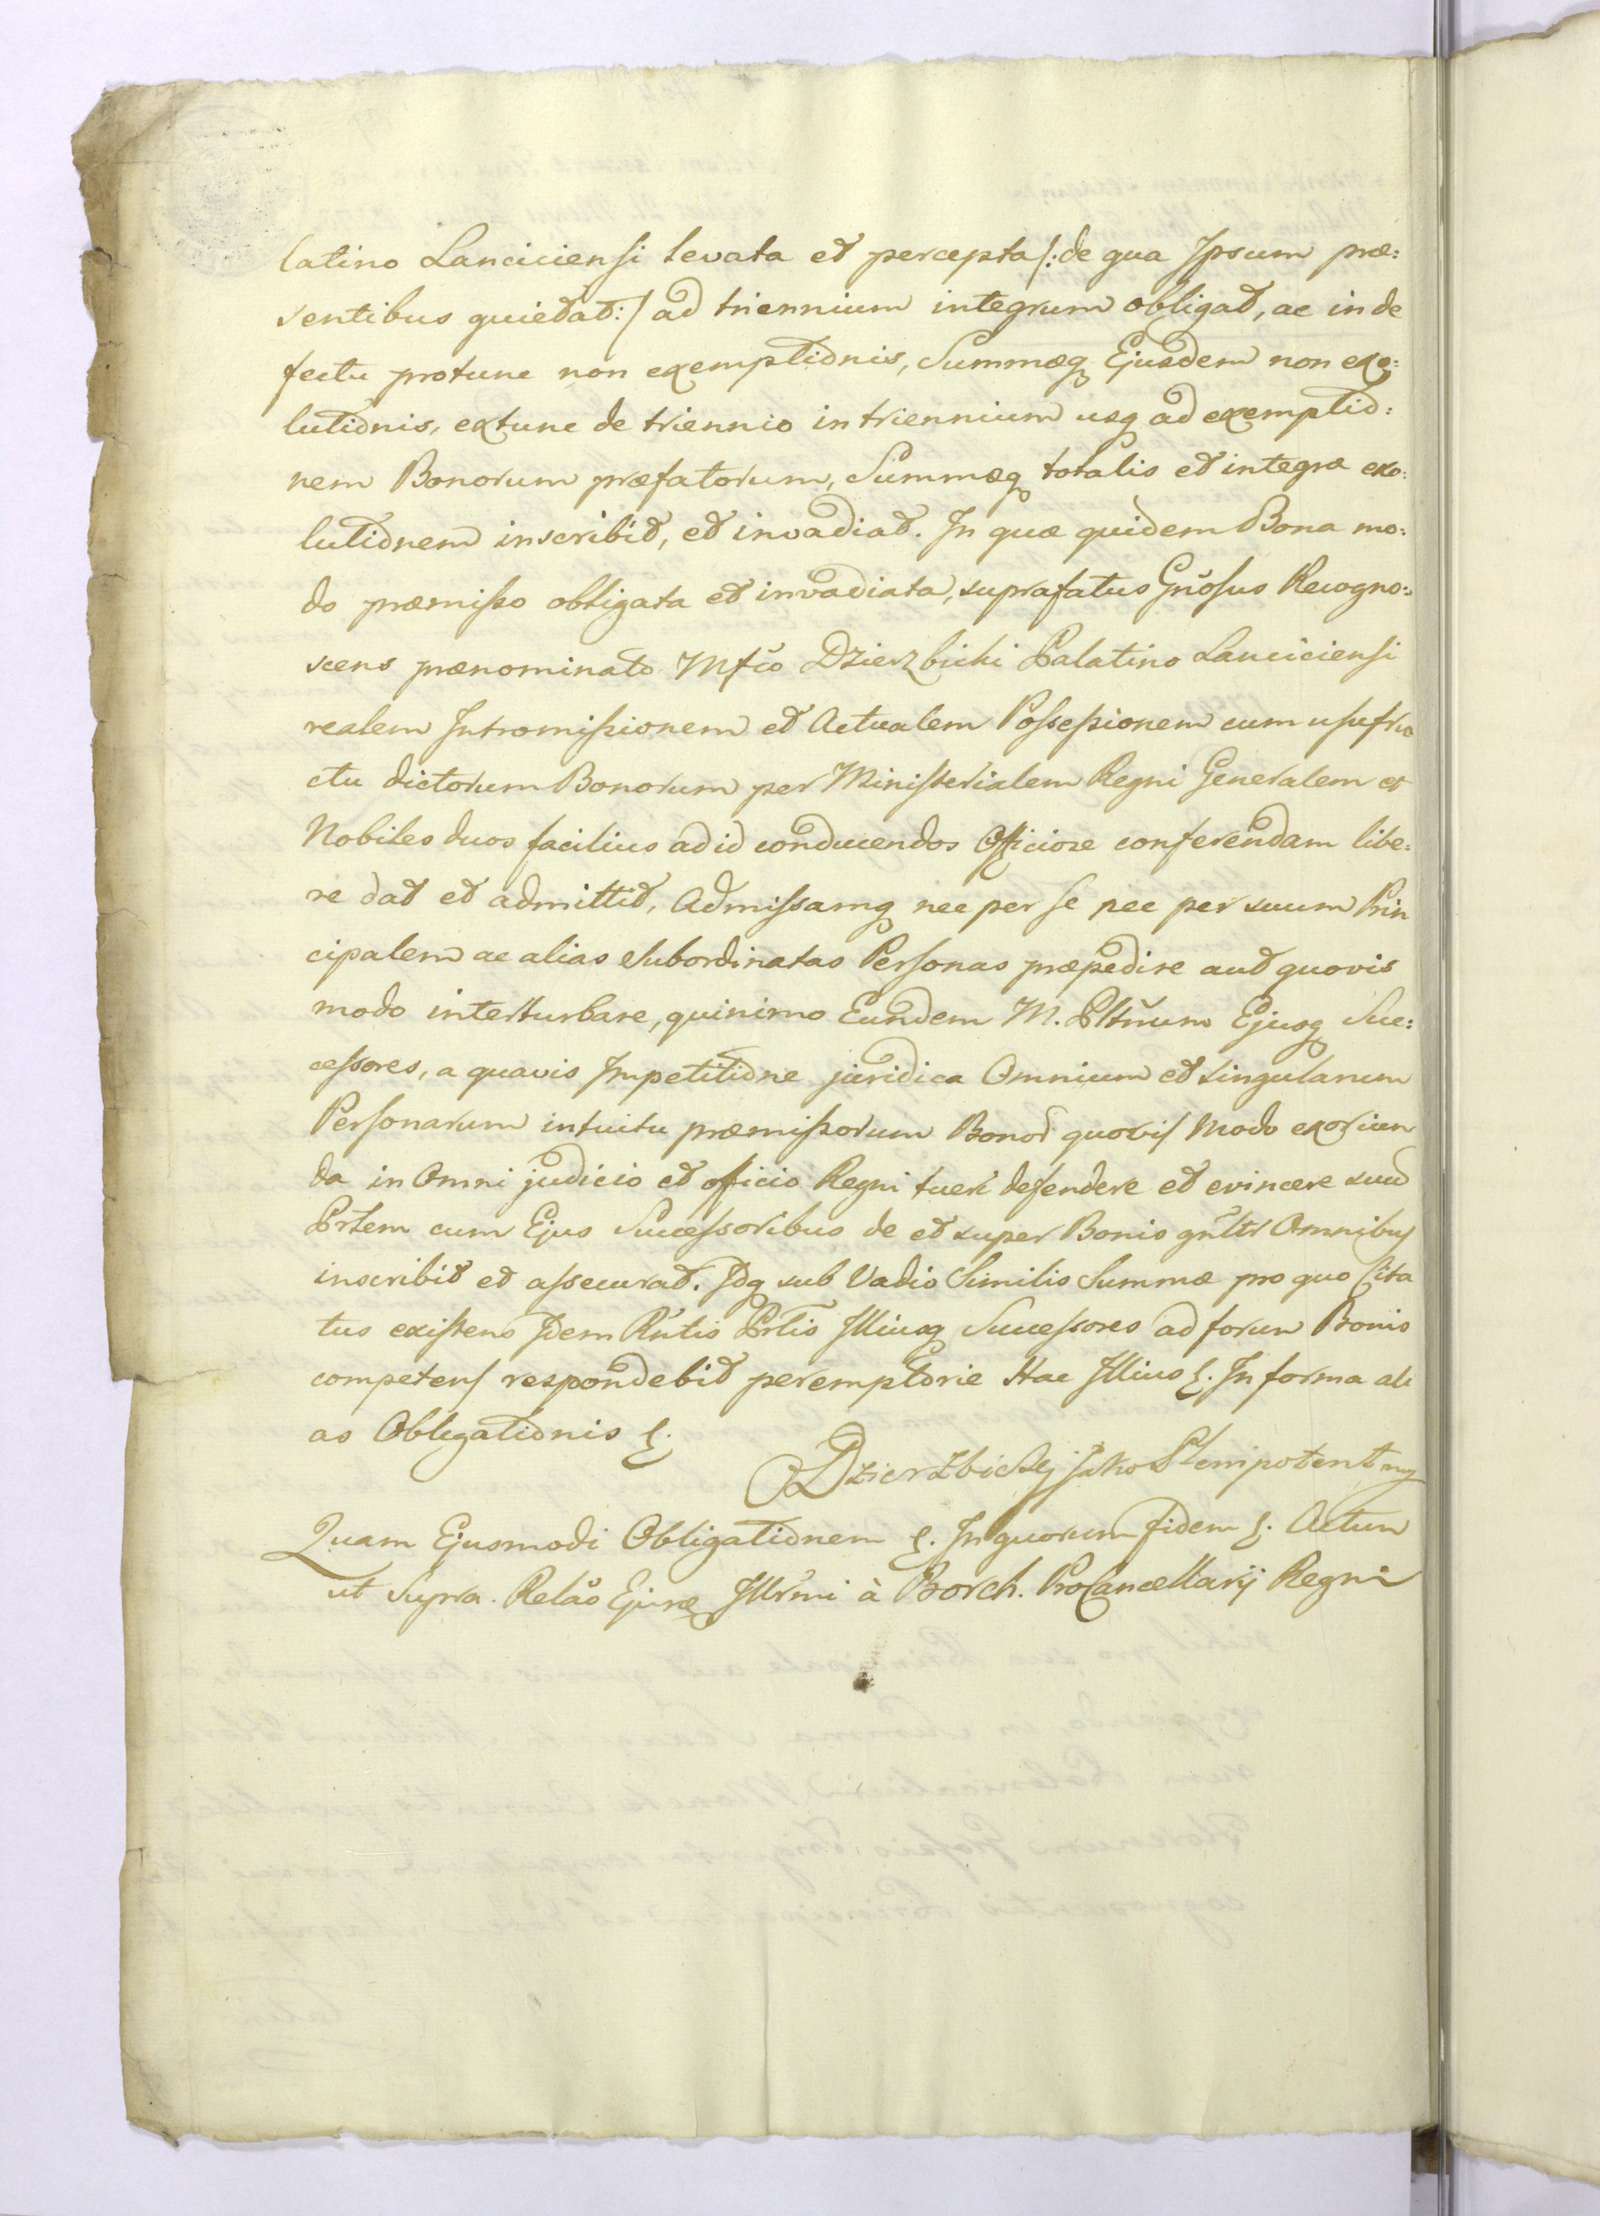 latino Lanciciensi levata et percepta /: de qua Ipsum præ:
sentibus quietat :/ ad triennium integrum obligat, ac in de
fectu protunc non exemptionis, Summæq Ejusdem non exo:
lutionis, extunc de triennio in triennium usq ad exemptio:
nem Bonorum præfatorum, Summæq totalis et integræ exo:
lutionem inscribit, et invadiat. In quæ quidem Bona mo:
do præmisso obligata et invadiata, suprafatus Gnosus Recogno:
scens prænominato Mfco Dzierzbicki Palatino Lanciciensi
realem Intromissionem et Actualem Possessionem cum usufru
ctu dictorum Bonorum per Ministerialem Regni Generalem et
Nobiles duos facilius ad id conducendos Officiose conferendam libe:
re dat et admittit, Admissamq nec per se nec per suum Prin
cipalem ac alias Subordinatas Personas præpedire aut quovis
modo interturbare, quinimo Eundem M. Pltnum Ejusq Suc:
cessores, a quavis Impetitione juridica Omnium et singularum
Personarum intuitu præmissorum Bonor quovis Modo exorien
da in Omni judicio et officio Regni tueri defendere et evincere suu
Prlem cum Ejus Successoribus de et super Bonis gnltr Omnibus
inscribit et assecurat. Idq sub Vadio Similis Summæ pro quo Cita
tus existens Idem Rntis Prlis Illiusq Successores ad forum Bonis
competens respondebit peremptorie Hac Illius &. In forma ali
as Obligationis &.
Dzierzbickij jako Plenipotent mp
Quam Ejusmodi Obligationem &. In quorum fidem &. Actum
ut Supra. Relao Ejusq Illrmi à Borch. ProCancellarij Regni